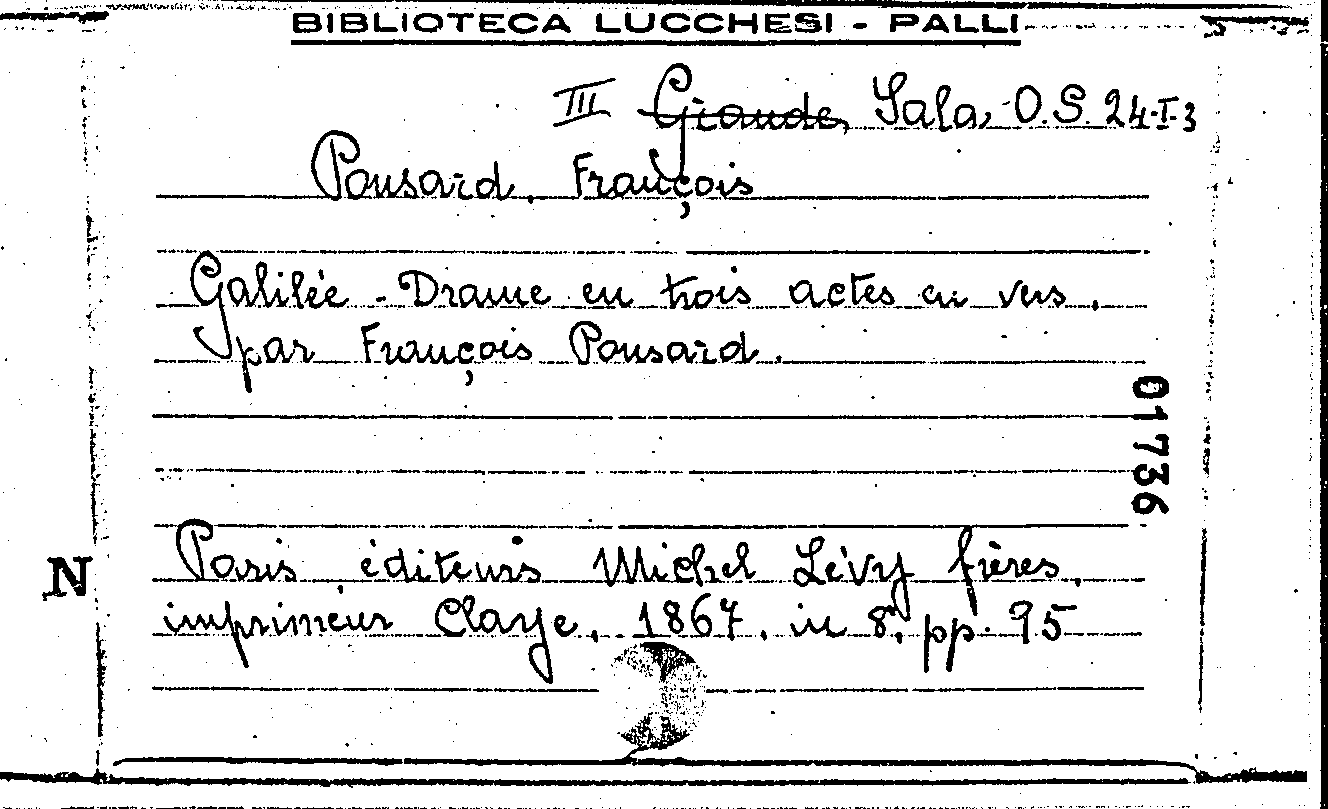 BIBLIOTECA LUCCHESI - PALLI
III Grande Sala, O.S. 24-I-3
Ponsard, François
Galilée - Drame en trois actes en vers,
par François Ponsard.
01736
N
Paris, éditeurs Michel Lévy frères,
imprimeur Claye, 1867, in 8°, pp. 95